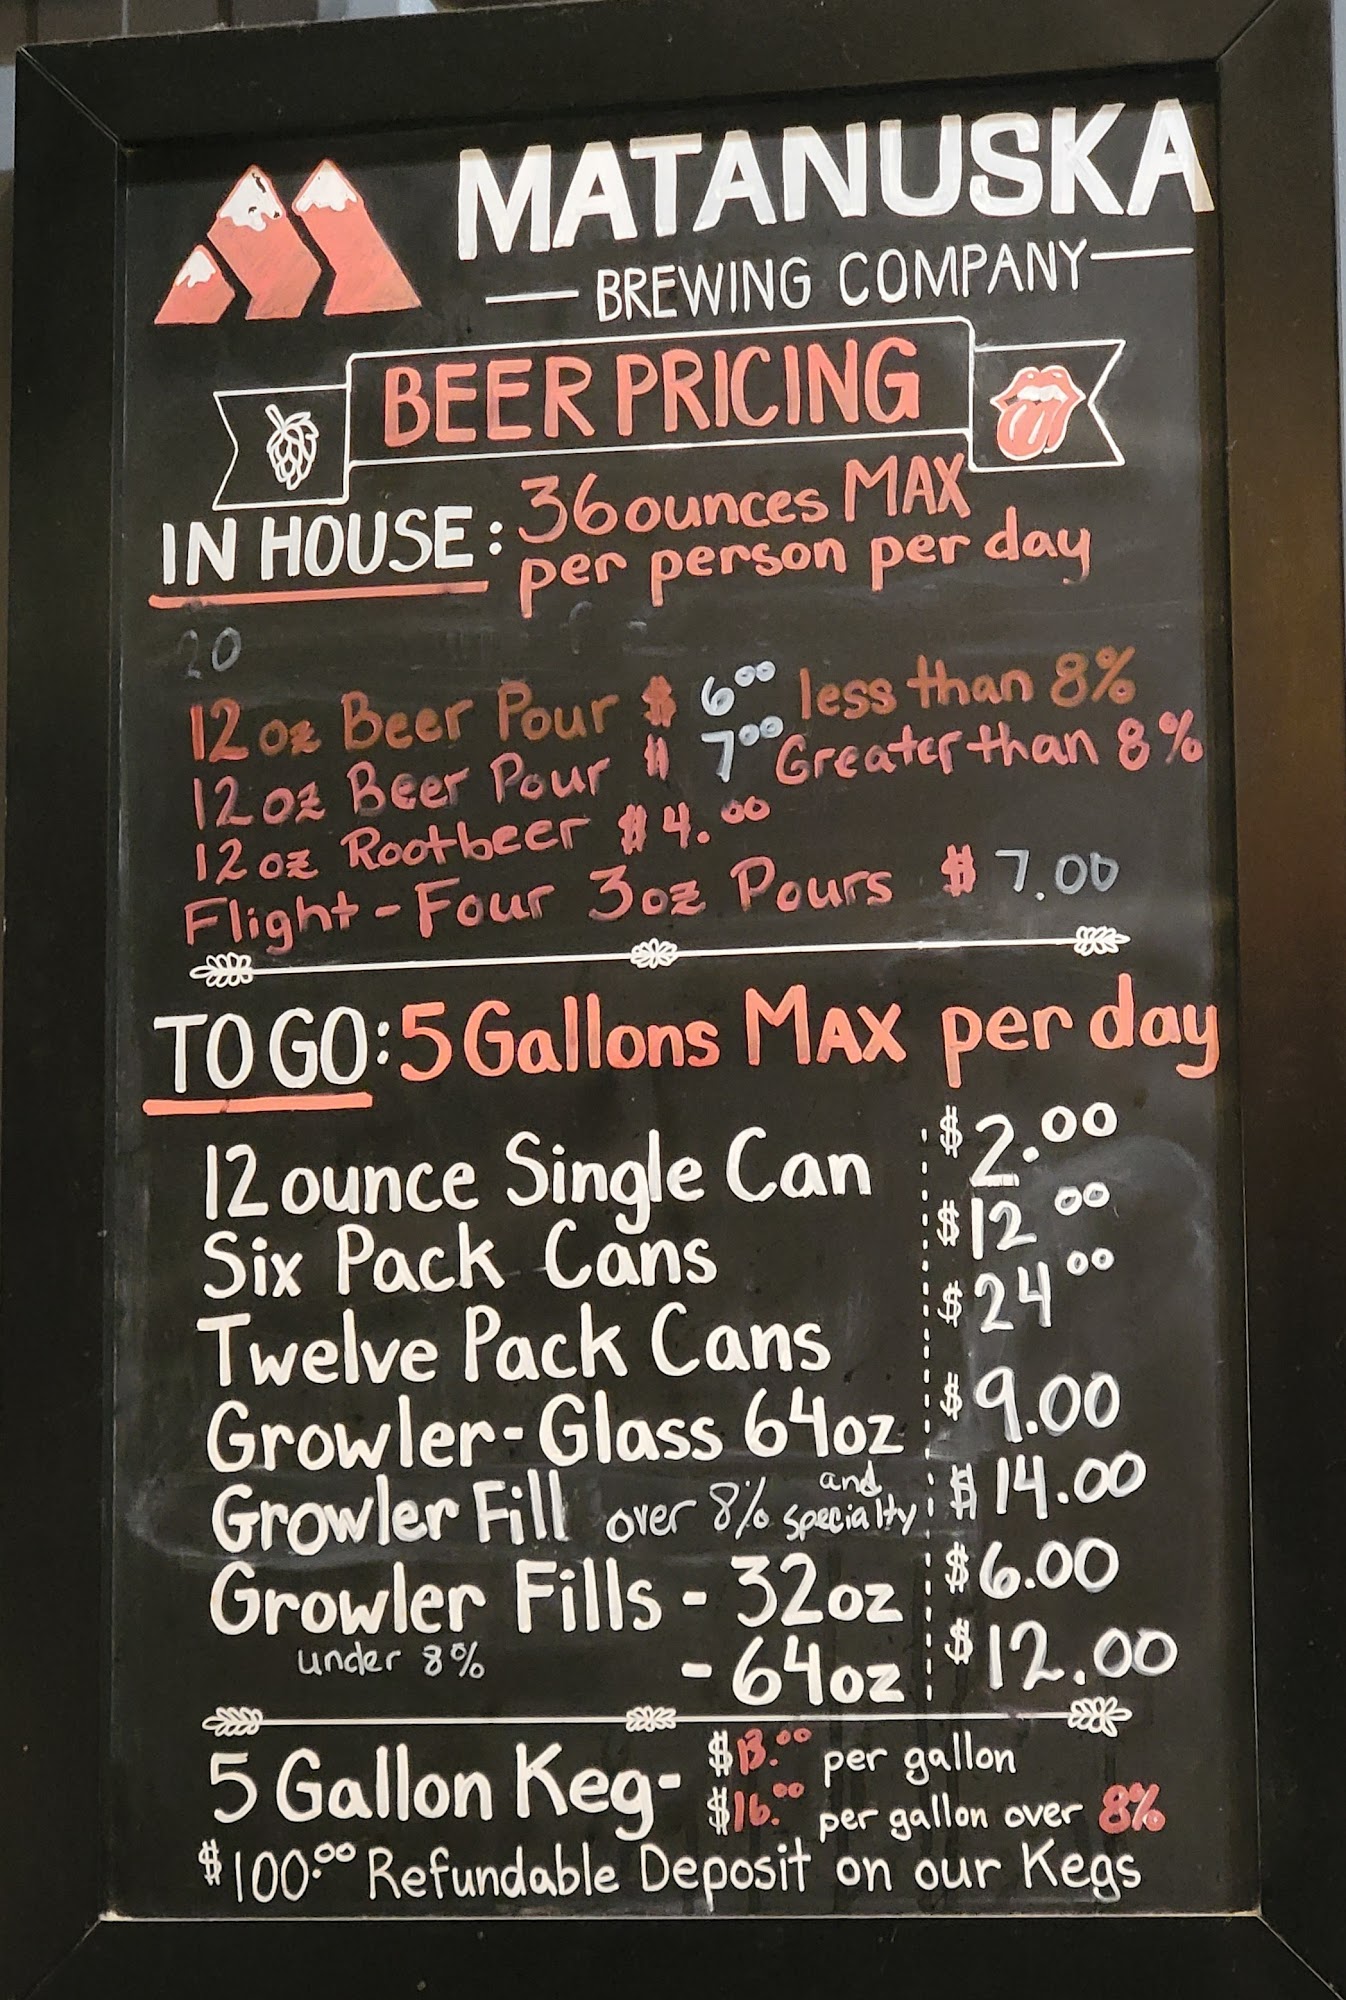 MATANUSKA
BREWING COMPANY
BEER PRICING
IN HOUSE: 36 ounces MAX
per person per day
20
12 oz Beer Pour $ 6.00 less than 8%
12 oz Beer Pour $ 7.00 Greater than 8%
12 oz Rootbeer $4.00
Flight - Four 3oz Pours $ 7.00
TO GO: 5 Gallons MAX per day
12 ounce Single Can $2.00
Six Pack Cans $12 00
Twelve Pack Cans $24 00
Growler - Glass 64oz $9.00
Growler Fill over 8% and specialty $14.00
Growler Fills - 32oz $6.00
under 8% - 64oz $12.00
5 Gallon Keg - $13.00 per gallon
$16.00 per gallon over 8%
$100.00 Refundable Deposit on our Kegs